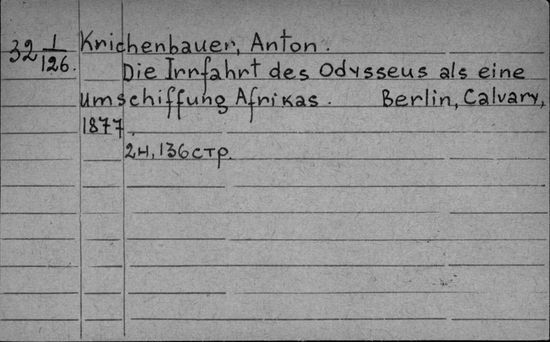 32 1/126. Krichenbauer, Anton.
Die Irrfahrt des Odysseus als eine
Umschiffung Afrikas. Berlin, Calvary,
1877.
2н, 136 стр.